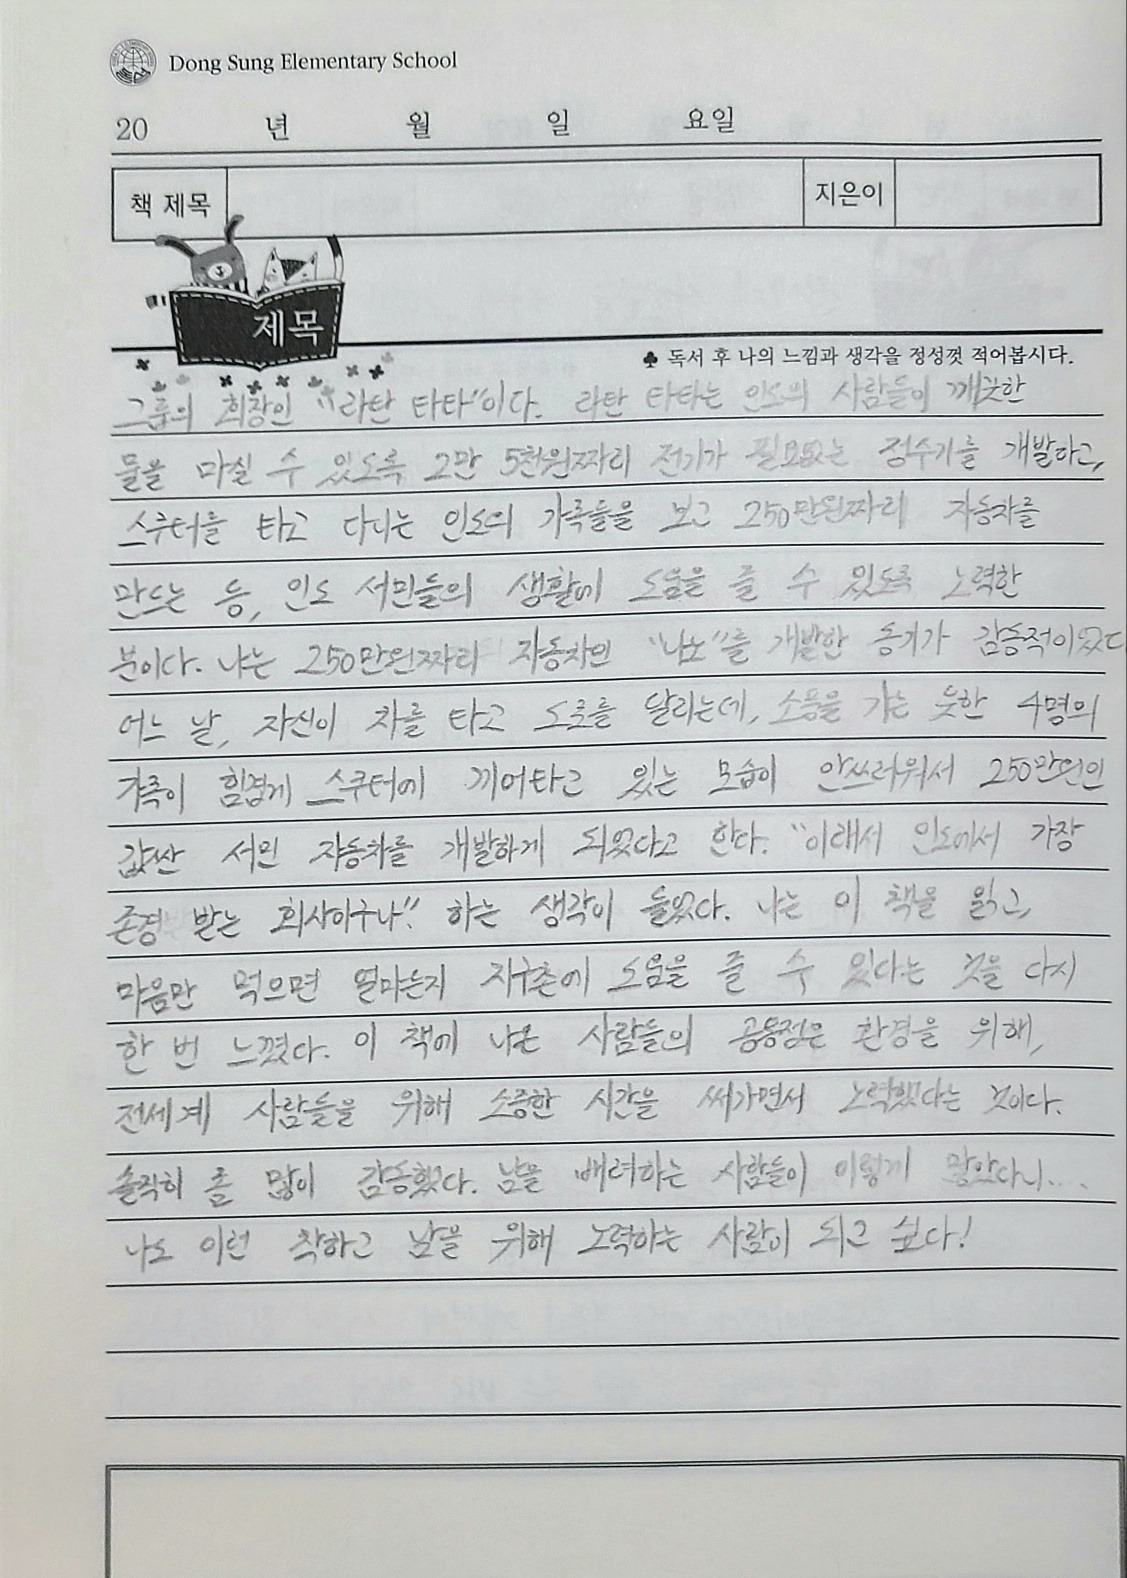 Dong Sung Elementary School
20 년 월 일 요일
책 제목 지은이
제목
♣ 독서 후 나의 느낌과 생각을 정성껏 적어봅시다.
그룹의 회장인 "라탄 타타"이다. 라탄 타타는 인도의 사람들이 깨끗한
물을 마실 수 있도록 2만 5천원짜리 전기가 필요없는 정수기를 개발하고,
스쿠터를 타고 다니는 인도의 가족들을 보고 250만원짜리 자동차를
만드는 등, 인도 서민들의 생활에 도움을 줄 수 있도록 노력한
분이다. 나는 250만원짜리 자동차인 "나노"를 개발한 동기가 감동적이었다
어느 날, 자신이 차를 타고 도로를 달리는데, 소풍을 가는 듯한 4명의
가족이 힘겹게 스쿠터에 끼어타고 있는 모습이 안쓰러워서 250만원인
값싼 서민 자동차를 개발하게 되었다고 한다. "이래서 인도에서 가장
존경 받는 회사이구나!" 하는 생각이 들었다. 나는 이 책을 읽고,
마음만 먹으면 얼마든지 지구촌에 도움을 줄 수 있다는 것을 다시
한 번 느꼈다. 이 책에 나온 사람들의 공통점은 환경을 위해,
전세계 사람들을 위해 소중한 시간을 써가면서 노력했다는 것이다.
솔직히 좀 많이 감동했다. 남을 배려하는 사람들이 이렇게 많았다니....
나도 이런 착하고 남을 위해 노력하는 사람이 되고 싶다!